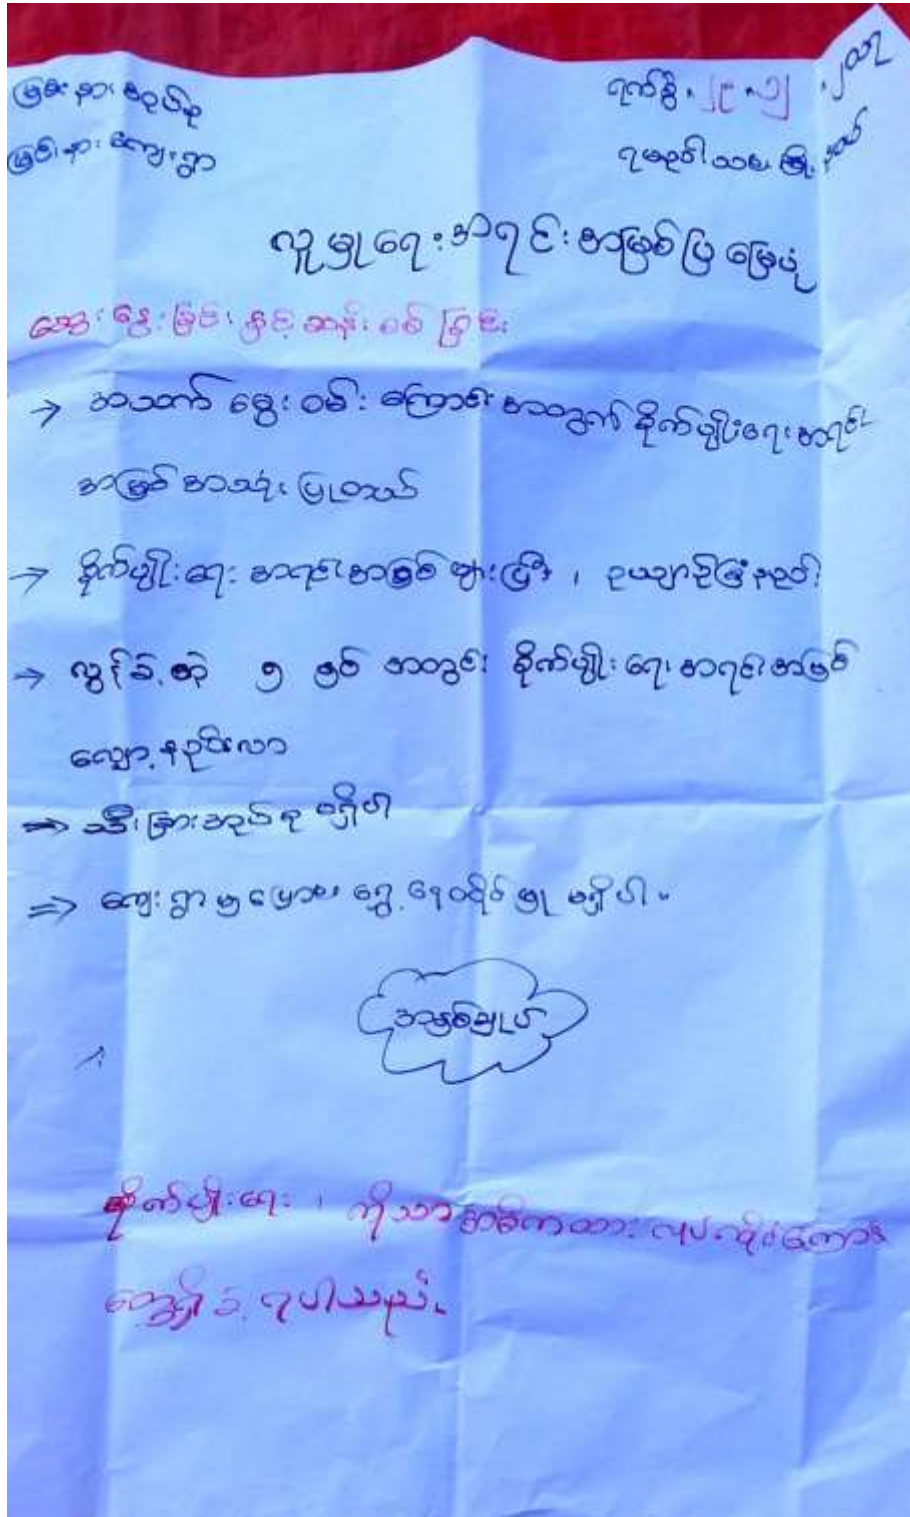 မြစ်နားအုပ်စု ရက်စွဲ၊ ၂၉.၁၂.၂၀၁၇
မြစ်နားကျေးရွာ ရမည်းသင်းမြို့နယ်
လူမှုရေးအရင်းအမြစ်ပြမြေပုံ
ဆွေးနွေးခြင်းနှင့်ဆန်းစစ်ခြင်း
→ အသက်မွေးဝမ်းကြောင်းအတွက် စိုက်ပျိုးရေးအရင်း
အမြစ်အသုံးပြုတယ်
→ စိုက်ပျိုးရေးအရင်းအမြစ်များပြီး၊ ဥယျာဉ်ခြံနည်း
→ လွန်ခဲ့တဲ့ ၅ နှစ် အတွင်း စိုက်ပျိုးရေးအရင်းအမြစ်
လျော့နည်းလာ
⇒ သီးခြားအုပ်စု မရှိပါ
⇒ ကျေးရွာမှ ရွှေ့နေထိုင်မှု မရှိပါ။
အနှစ်ချုပ်
စိုက်ပျိုးရေး ၊ ကိုသာအဓိကထားလုပ်ကိုင်ကြောင်း
တွေ့ရှိခဲ့ရပါသည်။